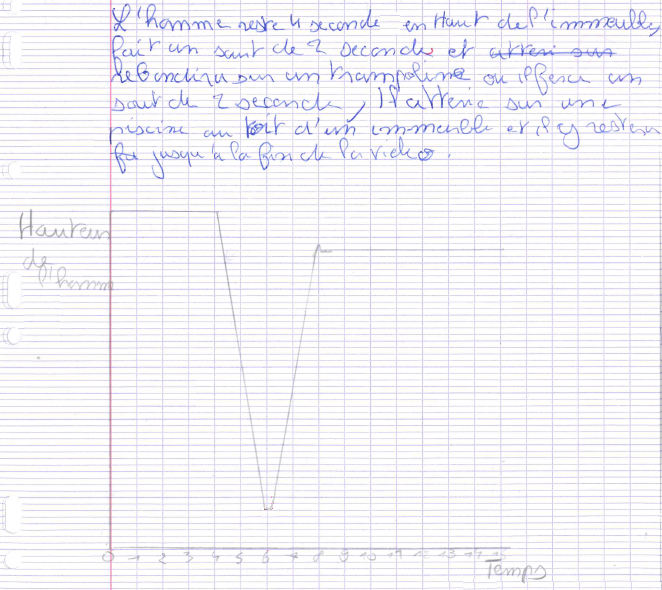 L'homme reste 4 seconde en Haut de l'immeuble,
fait un saut de 2 seconde et atteri sur
Rebondira sur un trampoline ou il fera un
saut de 2 seconde, Il atterie sur une
piscine au toit d'un immeuble et il y restera
jusqu'à la fin de la video.
Hauteur
de l'homme
0 1 2 3 4 5 6 7 8 9 10 11 12 13 14 15
Temps